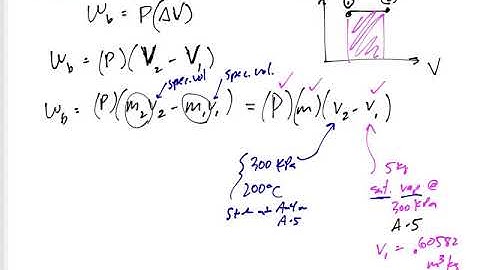 W_b = P(ΔV)
W_b = (P)(V_2 - V_1)
spec. vol
spec. vol.
W_b = (P)(m_2 v_2 - m_1 v_1) = (P)(m)(v_2 - v_1)
V
300 kPa
200°C
A-4
A-5
5 kg
sat. vap @
300 kPa
A-5
v_1 = .60582
m^3/kg